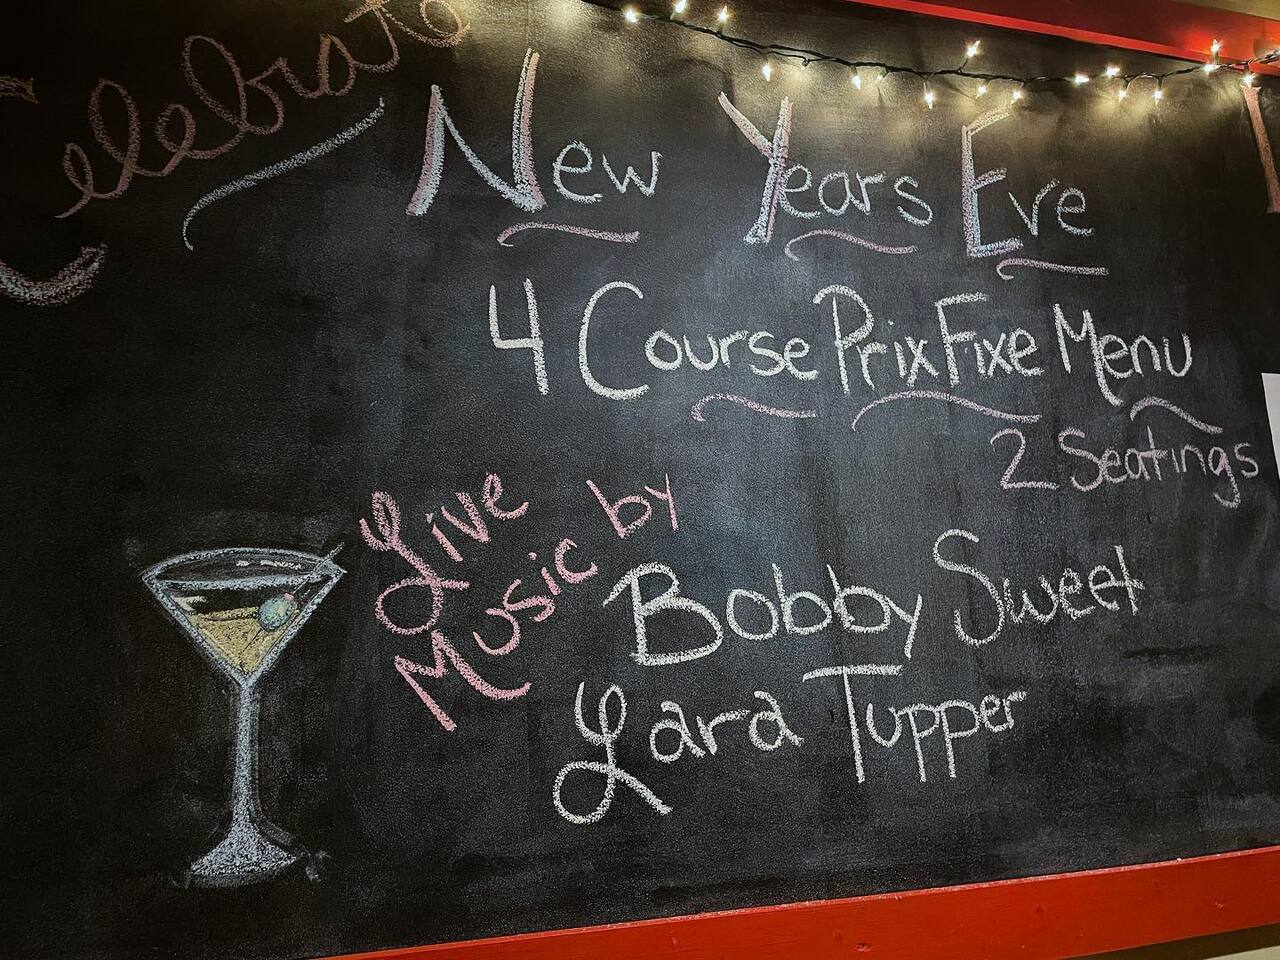 Celebrate
New Years Eve
4 Course Prix Fixe Menu
2 Seatings
Live
Music by
Bobby Sweet
Lara Tupper